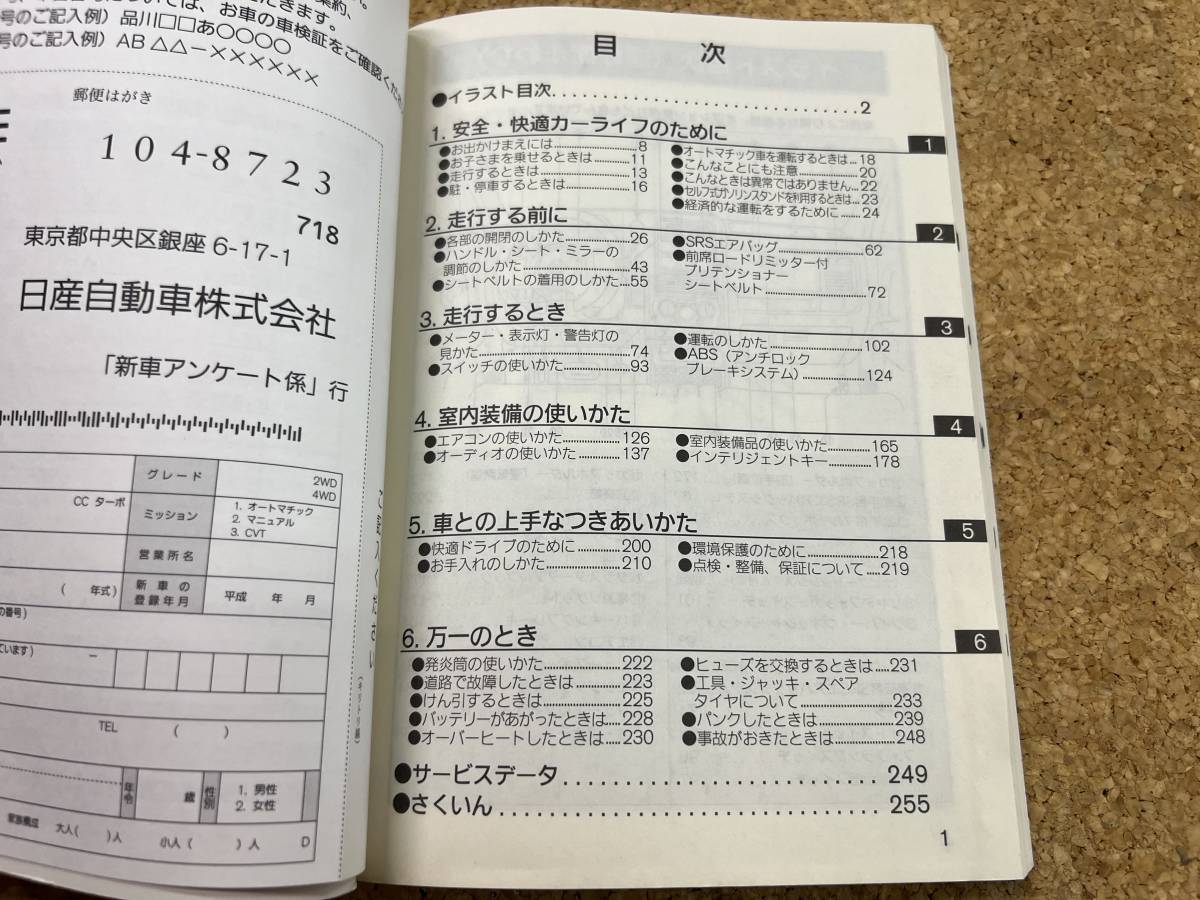 号のご記入例）品川□□あ○○○○
号のご記入例）AB△△－××××××
ては、お車の車検証をご確認くだ
郵便はがき
104-8723
718
東京都中央区銀座6-17-1
日産自動車株式会社
「新車アンケート係」行
グレード
2WD
4WD
CC ターボ
ミッション
1. オートマチック
2. マニュアル
3. CVT
営業所名
（ 年式）
新車の
登録年月
平成 年 月
の番号）
ています）
－
TEL （ ）
年令
歳
性別
1. 男性
2. 女性
家族構成 大人（ ）人 小人（ ）人 D
（キリトリ線）
目 次
●イラスト目次..............................2
1. 安全・快適カーライフのために
1
●お出かけまえには..................8
●お子さまを乗せるときは..........11
●走行するときは....................13
●駐・停車するときは..............16
●オートマチック車を運転するときは...18
●こんなことにも注意..............20
●こんなときは異常ではありません...22
●セルフ式ガソリンスタンドを利用するときは...23
●経済的な運転をするために.......24
2. 走行する前に
2
●各部の開閉のしかた..............26
●ハンドル・シート・ミラーの
調節のしかた......................43
●シートベルトの着用のしかた....55
●SRSエアバッグ....................62
●前席ロードリミッター付
プリテンショナー
シートベルト......................72
3. 走行するとき
3
●メーター・表示灯・警告灯の
見かた..............................74
●スイッチの使いかた..............93
●運転のしかた......................102
●ABS（アンチロック
ブレーキシステム）................124
4. 室内装備の使いかた
4
●エアコンの使いかた..............126
●オーディオの使いかた............137
●室内装備品の使いかた............165
●インテリジェントキー............178
5. 車との上手なつきあいかた
5
●快適ドライブのために............200
●お手入れのしかた................210
●環境保護のために................218
●点検・整備、保証について.....219
6. 万一のとき
6
●発炎筒の使いかた................222
●道路で故障したときは............223
●けん引するときは................225
●バッテリーがあがったときは....228
●オーバーヒートしたときは.....230
●ヒューズを交換するときは.....231
●工具・ジャッキ・スペア
タイヤについて....................233
●パンクしたときは................239
●事故がおきたときは..............248
●サービスデータ..............................249
●さくいん......................................255
1